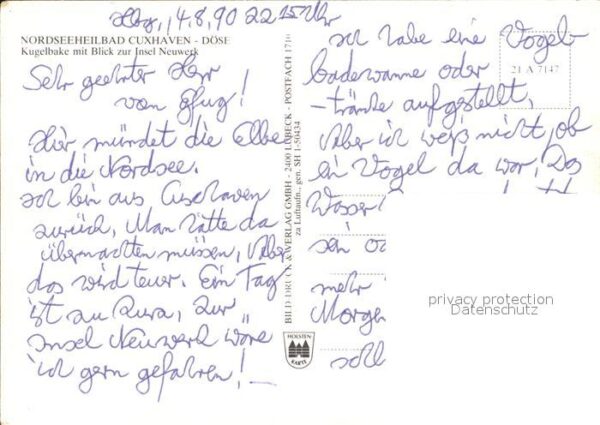 Hbg, 14.8.90 22.15 Uhr
NORDSEEHEILBAD CUXHAVEN - DÖSE
Kugelbake mit Blick zur Insel Neuwerk
Sehr geehrter Herr
von
Hier mündet die Elbe
in die Nordsee.
Ich bin aus Cuxhaven
zurück, Man hätte da
übernachten müssen, Aber
das wird teuer. Ein Tag
ist zu kurz, Zur
Insel Neuwerk wäre
ich gern gefahren!
BILD-DRUCK & VERLAG GMBH - 2400 LÜBECK - POSTFACH 1710
zu Luftaufn., gen. SH 1-50434
HOLSTEN
KARTE
21 A 7147
Ich habe eine Vogel-
badewanne oder
-tränke aufgestellt,
Aber ich weiß nicht, ob
ein Vogel da war, Das
Wasser
sein
mehr
Morgen
schl
privacy protection
Datenschutz